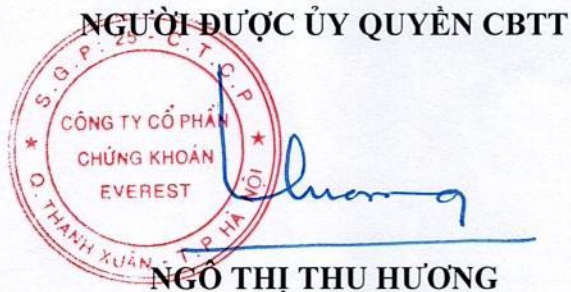 NGƯỜI ĐƯỢC ỦY QUYỀN CBTT
S.G.P: 25 - C.T.C.P
CÔNG TY CỔ PHẦN
CHỨNG KHOÁN
EVEREST
Q. THANH XUÂN - T.P HÀ NỘI
Huong
NGÔ THỊ THU HƯƠNG